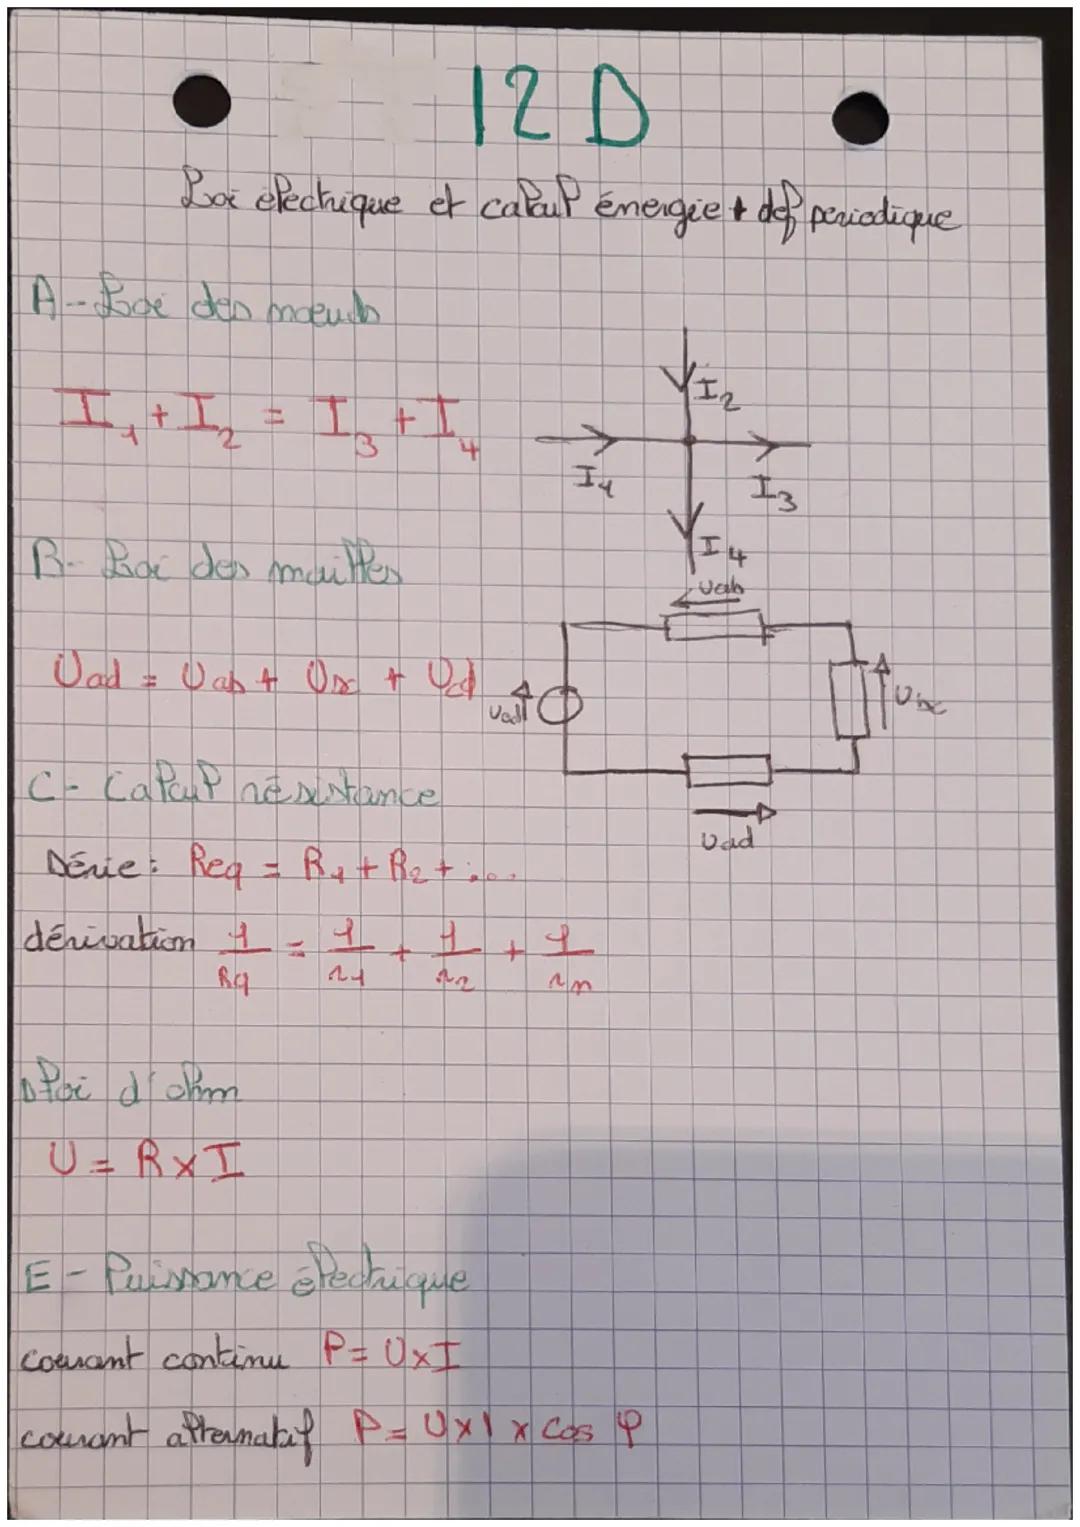 12 D
Loi électrique et calcul énergie + def periodique
A - Loi des noeuds
I₁ + I₂ = I₃ + I₄
I₂
I₁
I₃
I₄
B - Loi des mailles
Uab
Uad = Uab + Ubc + Ucd
Uad
Ubc
C - Calcul résistance
Uad
Série : Req = R₁ + R₂ + ...
dérivation 1/Rq = 1/r1 + 1/r2 + 1/rn
D loi d'ohm
U = R x I
E - Puissance électrique
courant continu P = U x I
courant alternatif P = U x I x cos φ